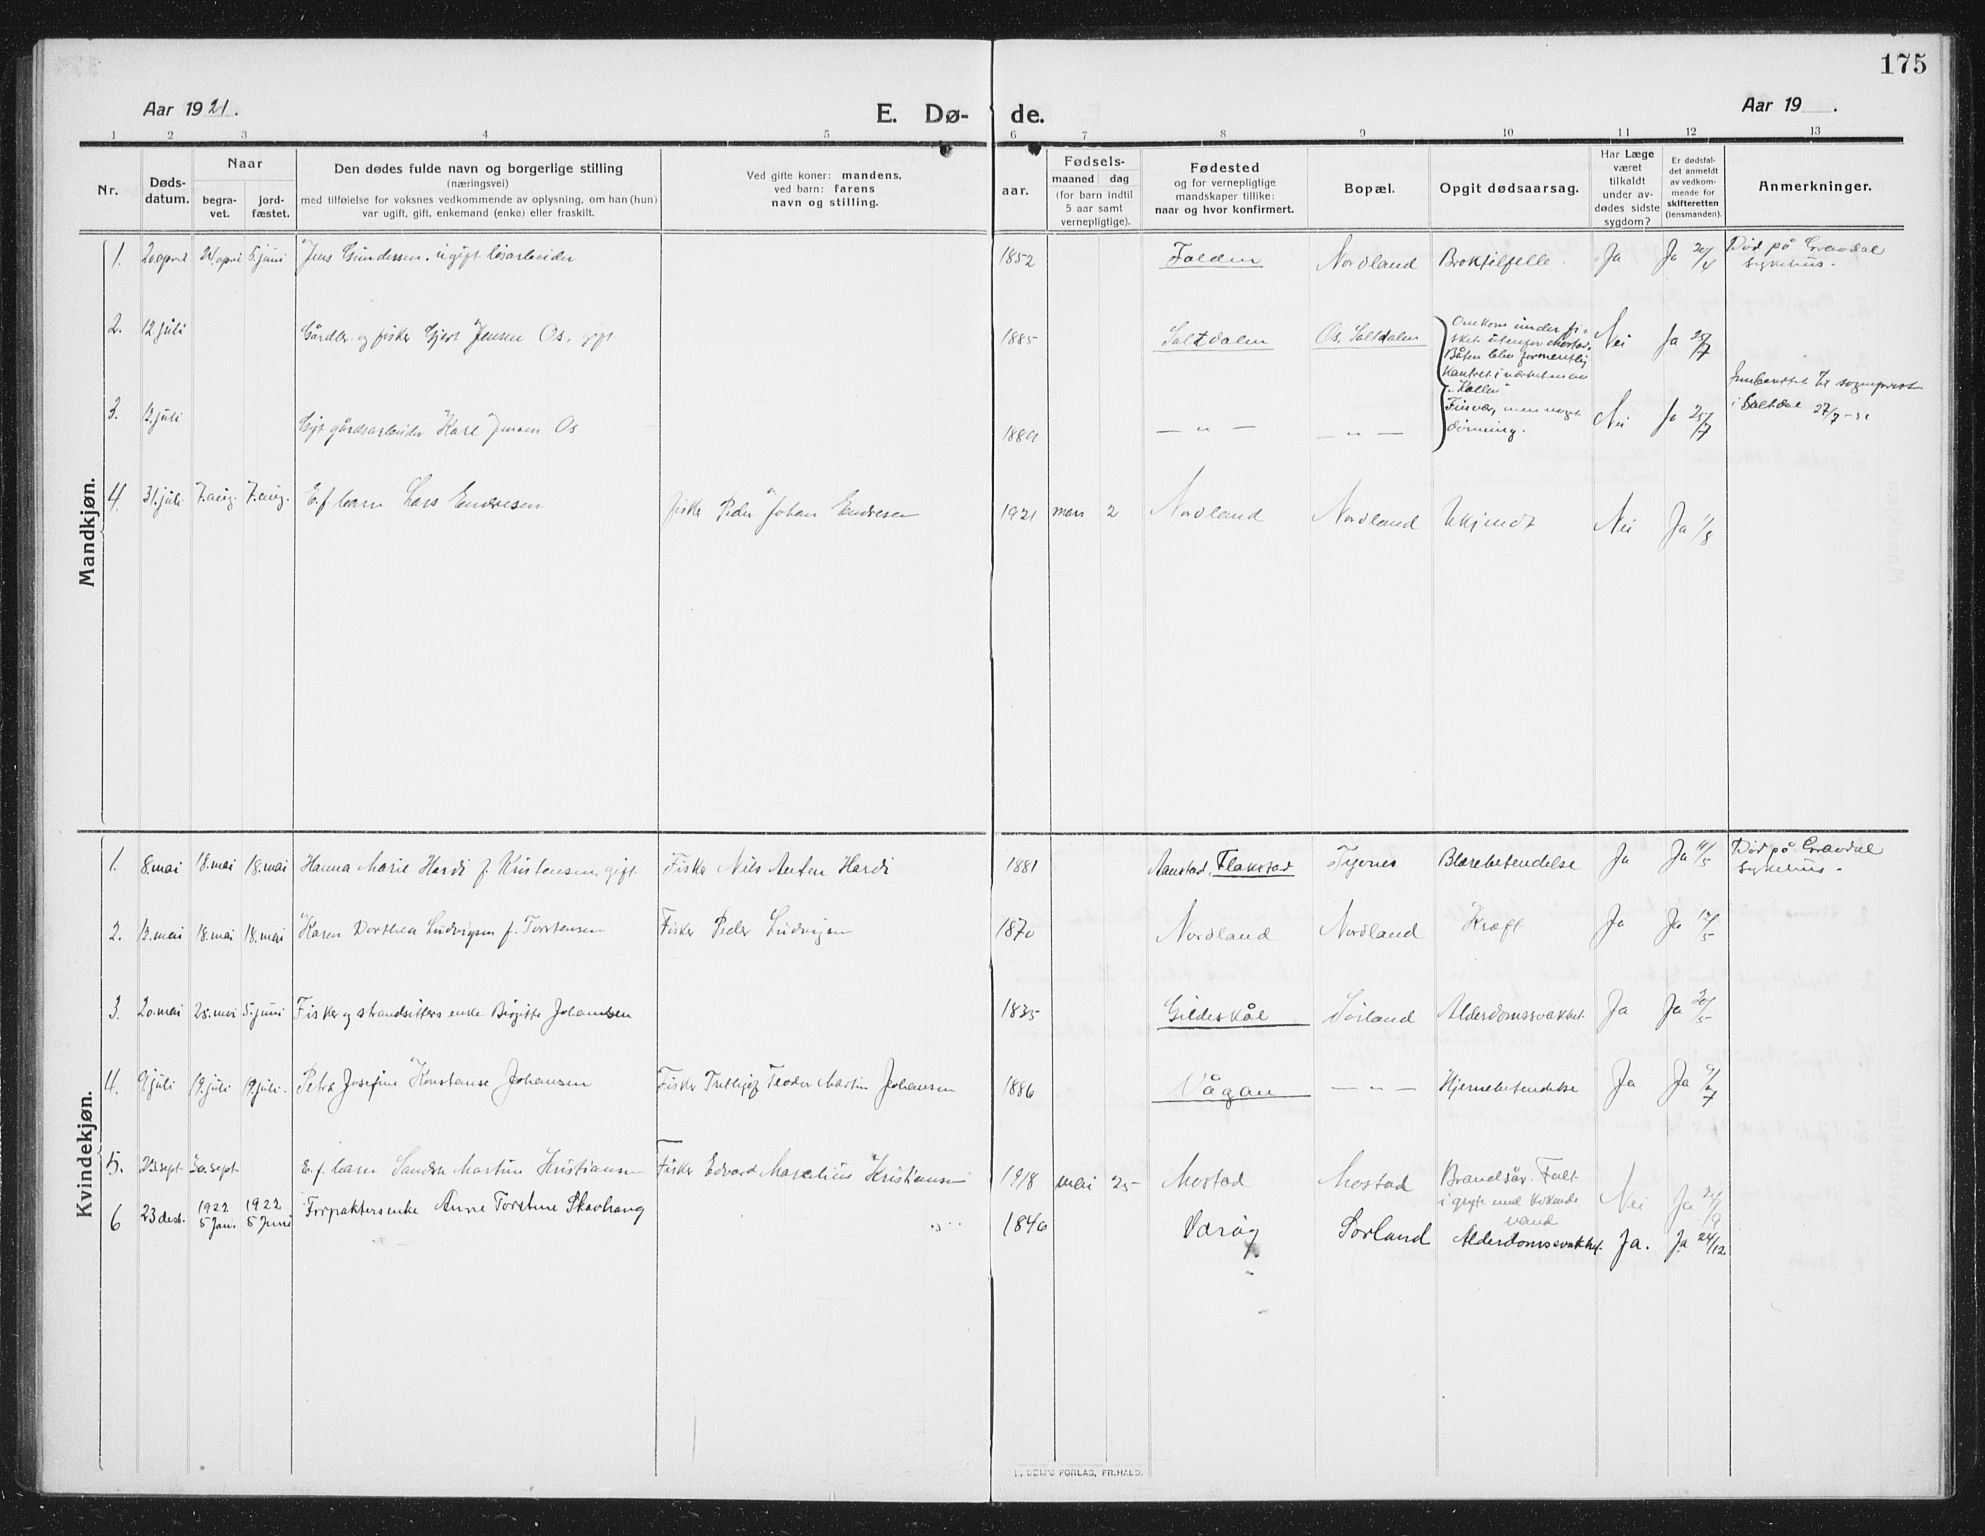 175
Aar 1921.
E. Dø- de.
Aar 19 .
1 2 3 4 5 6 7 8 9 10 11 12 13
Nr.
Døds-
datum.
Naar
begra-
vet.
jord-
fæstet.
Den dødes fulde navn og borgerlige stilling
(næringsvei)
med tilføielse for voksnes vedkommende av oplysning, om han (hun)
var ugift, gift, enkemand (enke) eller fraskilt.
Ved gifte koner: mandens,
ved barn: farens
navn og stilling.
aar.
Fødsels-
maaned dag
(for barn indtil
5 aar samt
vernepligtige).
Fødested
og for vernepligtige
mandskaper tillike:
naar og hvor konfirmert.
Bopæl.
Opgit dødsaarsag.
Har Læge
været
tilkaldt
under av-
dødes sidste
sygdom?
Er dødsfal-
det anmeldt
av vedkom-
mende for
skifteretten
(lensmanden).
Anmerkninger.
Mandkjøn.
1. 20 april 24. april 5. juni Jens Gundersen. ugift løsarbeider 1852 Folden Nordland Brokfilfelle. Ja Ja 20/4 Død på Gravdal
sykehus.
2. 12 juli Gårdbr. og fisker Gjert Jensen Os, gift 1885 Saltdalen Os, Saltdalen Omkom under fi-
sket utenfor Mostad.
Båten blev formentlig
kantret i nærheten av
Nei Ja 25/7
3. 12. juli Ugt gårdsarbeider Karl Jensen Os — „ — — „ — Nei Ja 25/7
Indberettet til sogneprest
i Saltdal 27/7-21
4. 31. juli 7. aug. 7. aug. E.f. barn Lars Endresen fisker Peder Johan Endresen 1921 mars 2 Nordland Nordland Ukjendt Nei Ja 1/8
Kvindekjøn.
1. 8. mai 18. mai 18. mai Hanna Marie Hardi f. Kristensen, gift Fisker Nils Anton Hardi 1881 Aanstad, Flakstad Tyvnes Blærebetendelse Ja Ja 11/5 Død på Gravdal
sykehus.
2. 13. mai 18. mai 18. mai Karen Dorthea Ludvigsen f. Torstensen Fisker Peder Ludvigsen 1870 Nordland Nordland Kræft Ja Ja 17/5
3. 20. mai 25. mai 5. juni Fisker og strandsitters enke Birgitte Johansen 1835 Gildeskål Sørland Alderdomssvakhet Ja Ja 20/5
4. 9. juli 19. juli 19. juli. Petra Josefine Konstanse Johansen Fisker Teodor Martin Johansen 1886 Vågan — „ — Hjernebetendelse Ja Ja 9/7
5. 23. sept 30. sept E.f. barn Sandra Martine Kristiansen Fisker Edvard Marelius Kristiansen 1918 mai 25 Mostad Mostad Brandsår. Falt
i gryte med kokende
vand
Nei Ja 24/9
6 23 desb. 1922
5 Jan. 1922
5 Juni Forpaktersenke Anne Torstine Skavhaug „ 1846 Værøy Sørland Alderdomssvakhet. Ja. Ja 24/12
FORLAG, FR.HALD.